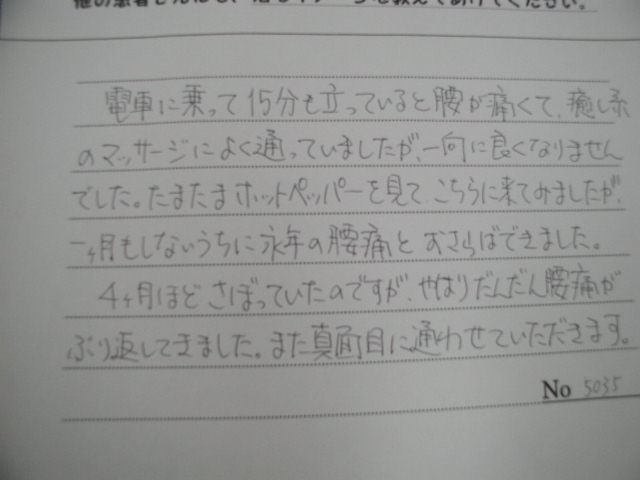 電車に乗って15分も立っていると腰が痛くて、癒し系
のマッサージによく通っていましたが、一向に良くなりません
でした。たまたまホットペッパーを見て、こちらに来てみましたが、
一ヶ月もしないうちに永年の腰痛とおさらばできました。
4ヶ月ほどさぼっていたのですが、やはりだんだん腰痛が
ぶり返してきました。また真面目に通わせていただきます。
No 5035